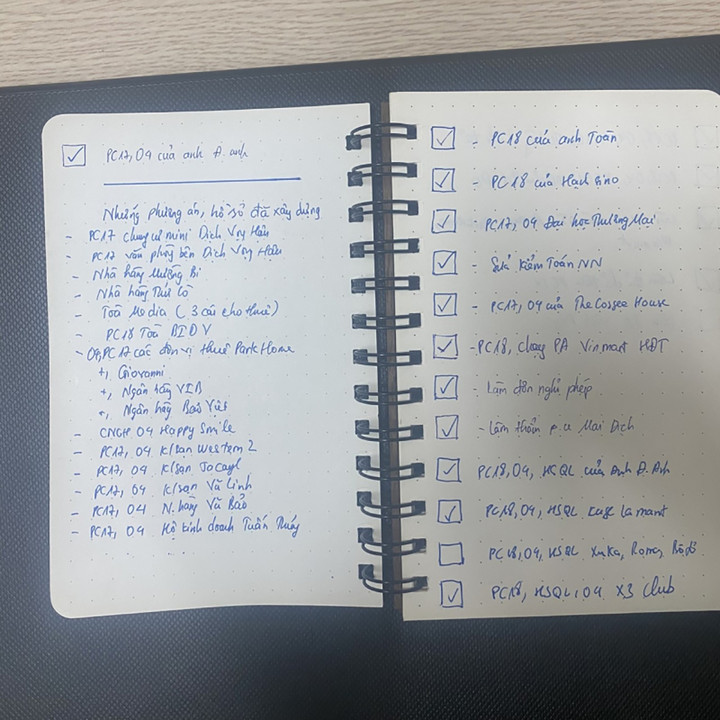 PC17, 04 của anh Đ. anh
Những phương án, hồ sơ đã xây dựng
- PC17 chung cư mini Dịch Vọng Hậu
- PC17 văn phòng bên Dịch Vọng Hậu
- Nhà hàng Mường Bi
- Nhà hàng Thủ Cò
- Toà Media (3 cái cho thuê)
PC18 Toà BIDV
- 04, PC17 các đơn vị thuê Park Home
+, Giovanni
+, Ngân hàng VIB
+, Ngân hàng Bảo Việt
- CNCH 04 Happy Smile
- PC17, 04 K/sạn Western 2
- PC17, 04 K/sạn
- PC17, 04 K/sạn Vũ Linh
- PC17, 04 N.hàng Vũ Bảo
- PC17, 04 Hộ kinh doanh Tuấn Thúy
- PC18 của anh Toàn
- PC18 của
PC17, 04 Đại học Thương Mại
- Sửa Kiểm Toán NN
- PC17, 04 của The Coffee House
- PC18, Chạy PA Vinmart HĐT
- Làm đơn nghỉ phép
- Làm thẩm p.a Mai Dịch
PC18, 04, HSQL của anh Đ. Anh
PC18, 04, HSQL La mant
PC18, 04, HSQL Xuka,
PC18, HSQL, 04 X3 Club